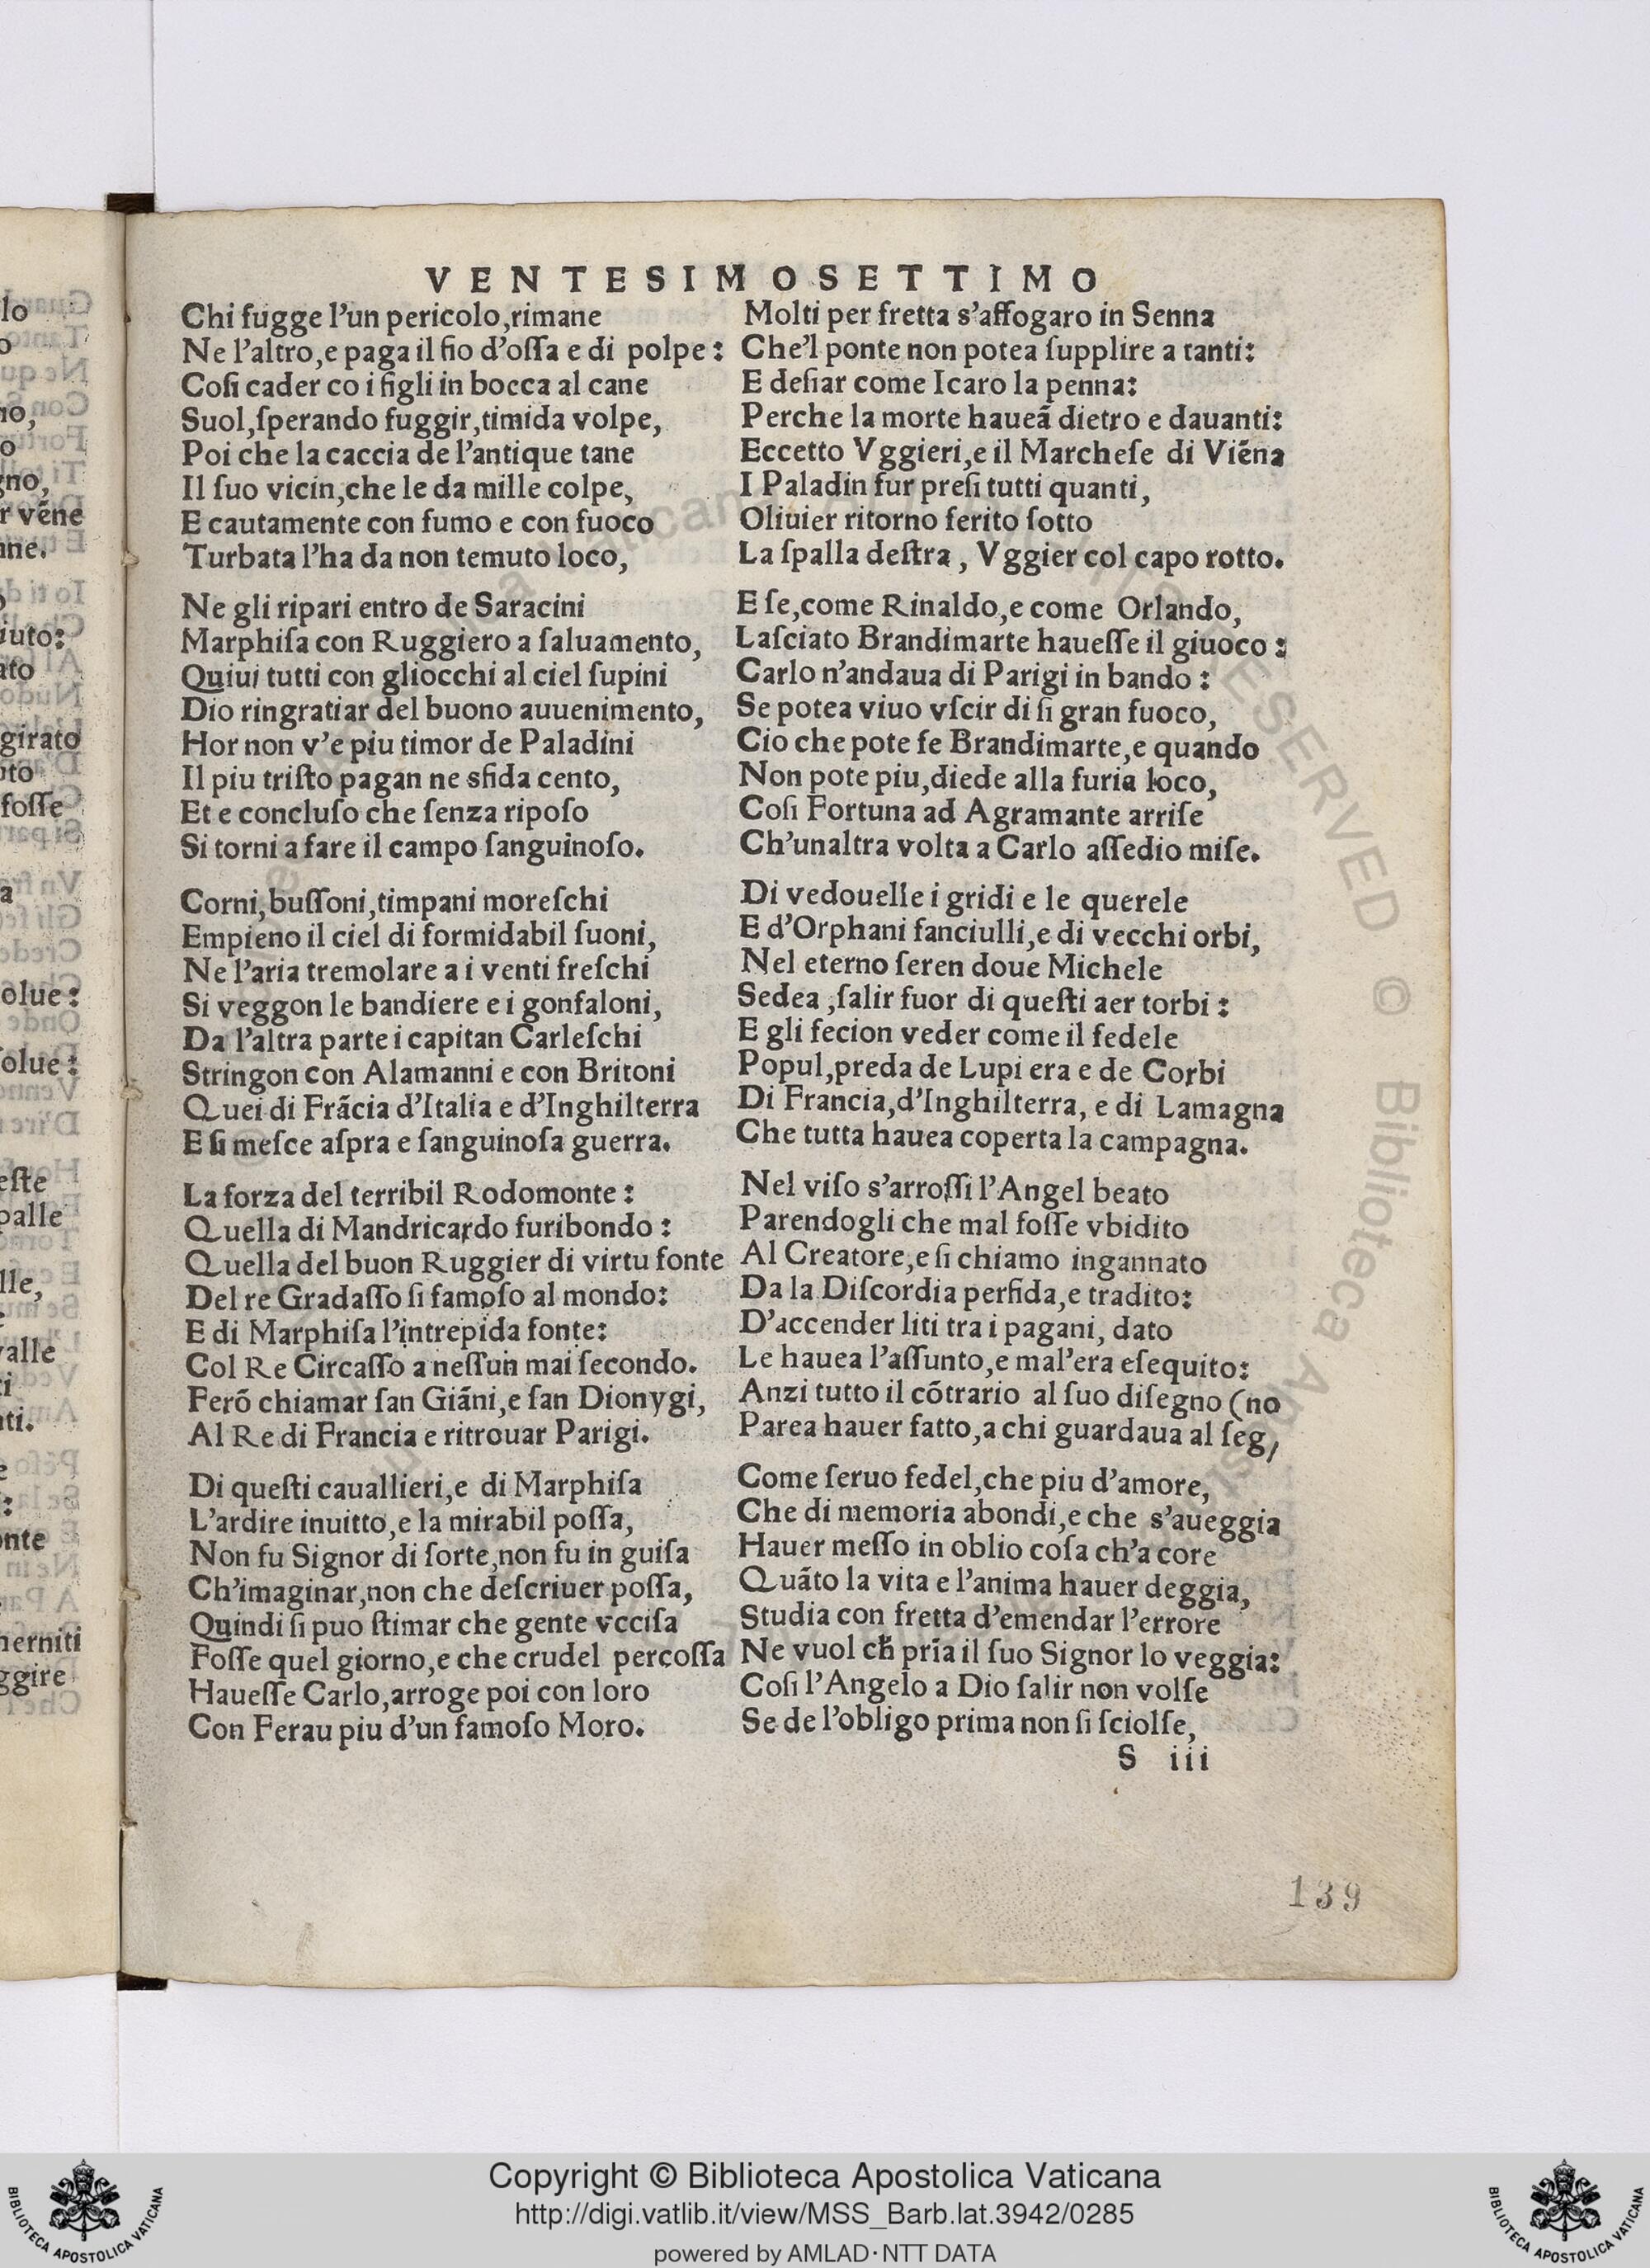 VENTESIMOSETTIMO
Chi fugge l'un pericolo,rimane
Ne l'altro,e paga il fio d'oſſa e di polpe:
Coſi cader co i figli in bocca al cane
Suol,ſperando fuggir,timida volpe,
Poi che la caccia de l'antique tane
Il ſuo vicin,che le da mille colpe,
E cautamente con fumo e con fuoco
Turbata l'ha da non temuto loco,
Ne gli ripari entro de Saracini
Marphiſa con Ruggiero a ſaluamento,
Quiui tutti con gliocchi al ciel ſupini
Dio ringratiar del buono auuenimento,
Hor non v'e piu timor de Paladini
Il piu triſto pagan ne sfida cento,
Et e concluſo che ſenza ripoſo
Si torni a fare il campo ſanguinoſo.
Corni,buſſoni,timpani moreſchi
Empieno il ciel di formidabil ſuoni,
Ne l'aria tremolare a i venti freſchi
Si veggon le bandiere e i gonfaloni,
Da l'altra parte i capitan Carleſchi
Stringon con Alamanni e con Britoni
Quei di Frācia d'Italia e d'Inghilterra
E ſi meſce aſpra e ſanguinoſa guerra.
La forza del terribil Rodomonte:
Quella di Mandricardo furibondo:
Quella del buon Ruggier di virtu fonte
Del re Gradaſſo ſi famoſo al mondo:
E di Marphiſa l'intrepida fonte:
Col Re Circaſſo a neſſun mai ſecondo.
Ferō chiamar ſan Giāni,e ſan Dionygi,
Al Re di Francia e ritrouar Parigi.
Di queſti cauallieri,e di Marphiſa
L'ardire inuitto,e la mirabil poſſa,
Non fu Signor di ſorte,non fu in guiſa
Ch'imaginar,non che deſcriuer poſſa,
Quindi ſi puo ſtimar che gente vcciſa
Foſſe quel giorno,e che crudel percoſſa
Haueſſe Carlo,arroge poi con loro
Con Ferau piu d'un famoſo Moro.
Molti per fretta s'affogaro in Senna
Che'l ponte non potea ſupplire a tanti:
E deſiar come Icaro la penna:
Perche la morte haueā dietro e dauanti:
Eccetto Vggieri,e il Marcheſe di Viēna
I Paladin fur preſi tutti quanti,
Oliuier ritorno ferito ſotto
La ſpalla deſtra, Vggier col capo rotto.
E ſe,come Rinaldo,e come Orlando,
Laſciato Brandimarte haueſſe il giuoco:
Carlo n'andaua di Parigi in bando:
Se potea viuo vſcir di ſi gran fuoco,
Cio che pote fe Brandimarte,e quando
Non pote piu,diede alla furia loco,
Coſi Fortuna ad Agramante arriſe
Ch'unaltra volta a Carlo aſſedio miſe.
Di vedouelle i gridi e le querele
E d'Orphani fanciulli,e di vecchi orbi,
Nel eterno ſeren doue Michele
Sedea,ſalir fuor di queſti aer torbi:
E gli fecion veder come il fedele
Popul,preda de Lupi era e de Corbi
Di Francia,d'Inghilterra, e di Lamagna
Che tutta hauea coperta la campagna.
Nel viſo s'arroſſi l'Angel beato
Parendogli che mal foſſe vbidito
Al Creatore,e ſi chiamo ingannato
Da la Diſcordia perfida,e tradito:
D'accender liti tra i pagani, dato
Le hauea l'aſſunto,e mal'era eſequito:
Anzi tutto il cōtrario al ſuo diſegno (no
Parea hauer fatto,a chi guardaua al ſeg,
Come ſeruo fedel,che piu d'amore,
Che di memoria abondi,e che s'aueggia
Hauer meſſo in oblio coſa ch'a core
Quāto la vita e l'anima hauer deggia,
Studia con fretta d'emendar l'errore
Ne vuol cħ pria il ſuo Signor lo veggia:
Coſi l'Angelo a Dio ſalir non volſe
Se de l'obligo prima non ſi ſciolſe,
S iii
139
Copyright © Biblioteca Apostolica Vaticana
http://digi.vatlib.it/view/MSS_Barb.lat.3942/0285
powered by AMLAD·NTT DATA
BIBLIOTECA APOSTOLICA VATICANA
BIBLIOTECA APOSTOLICA VATICANA